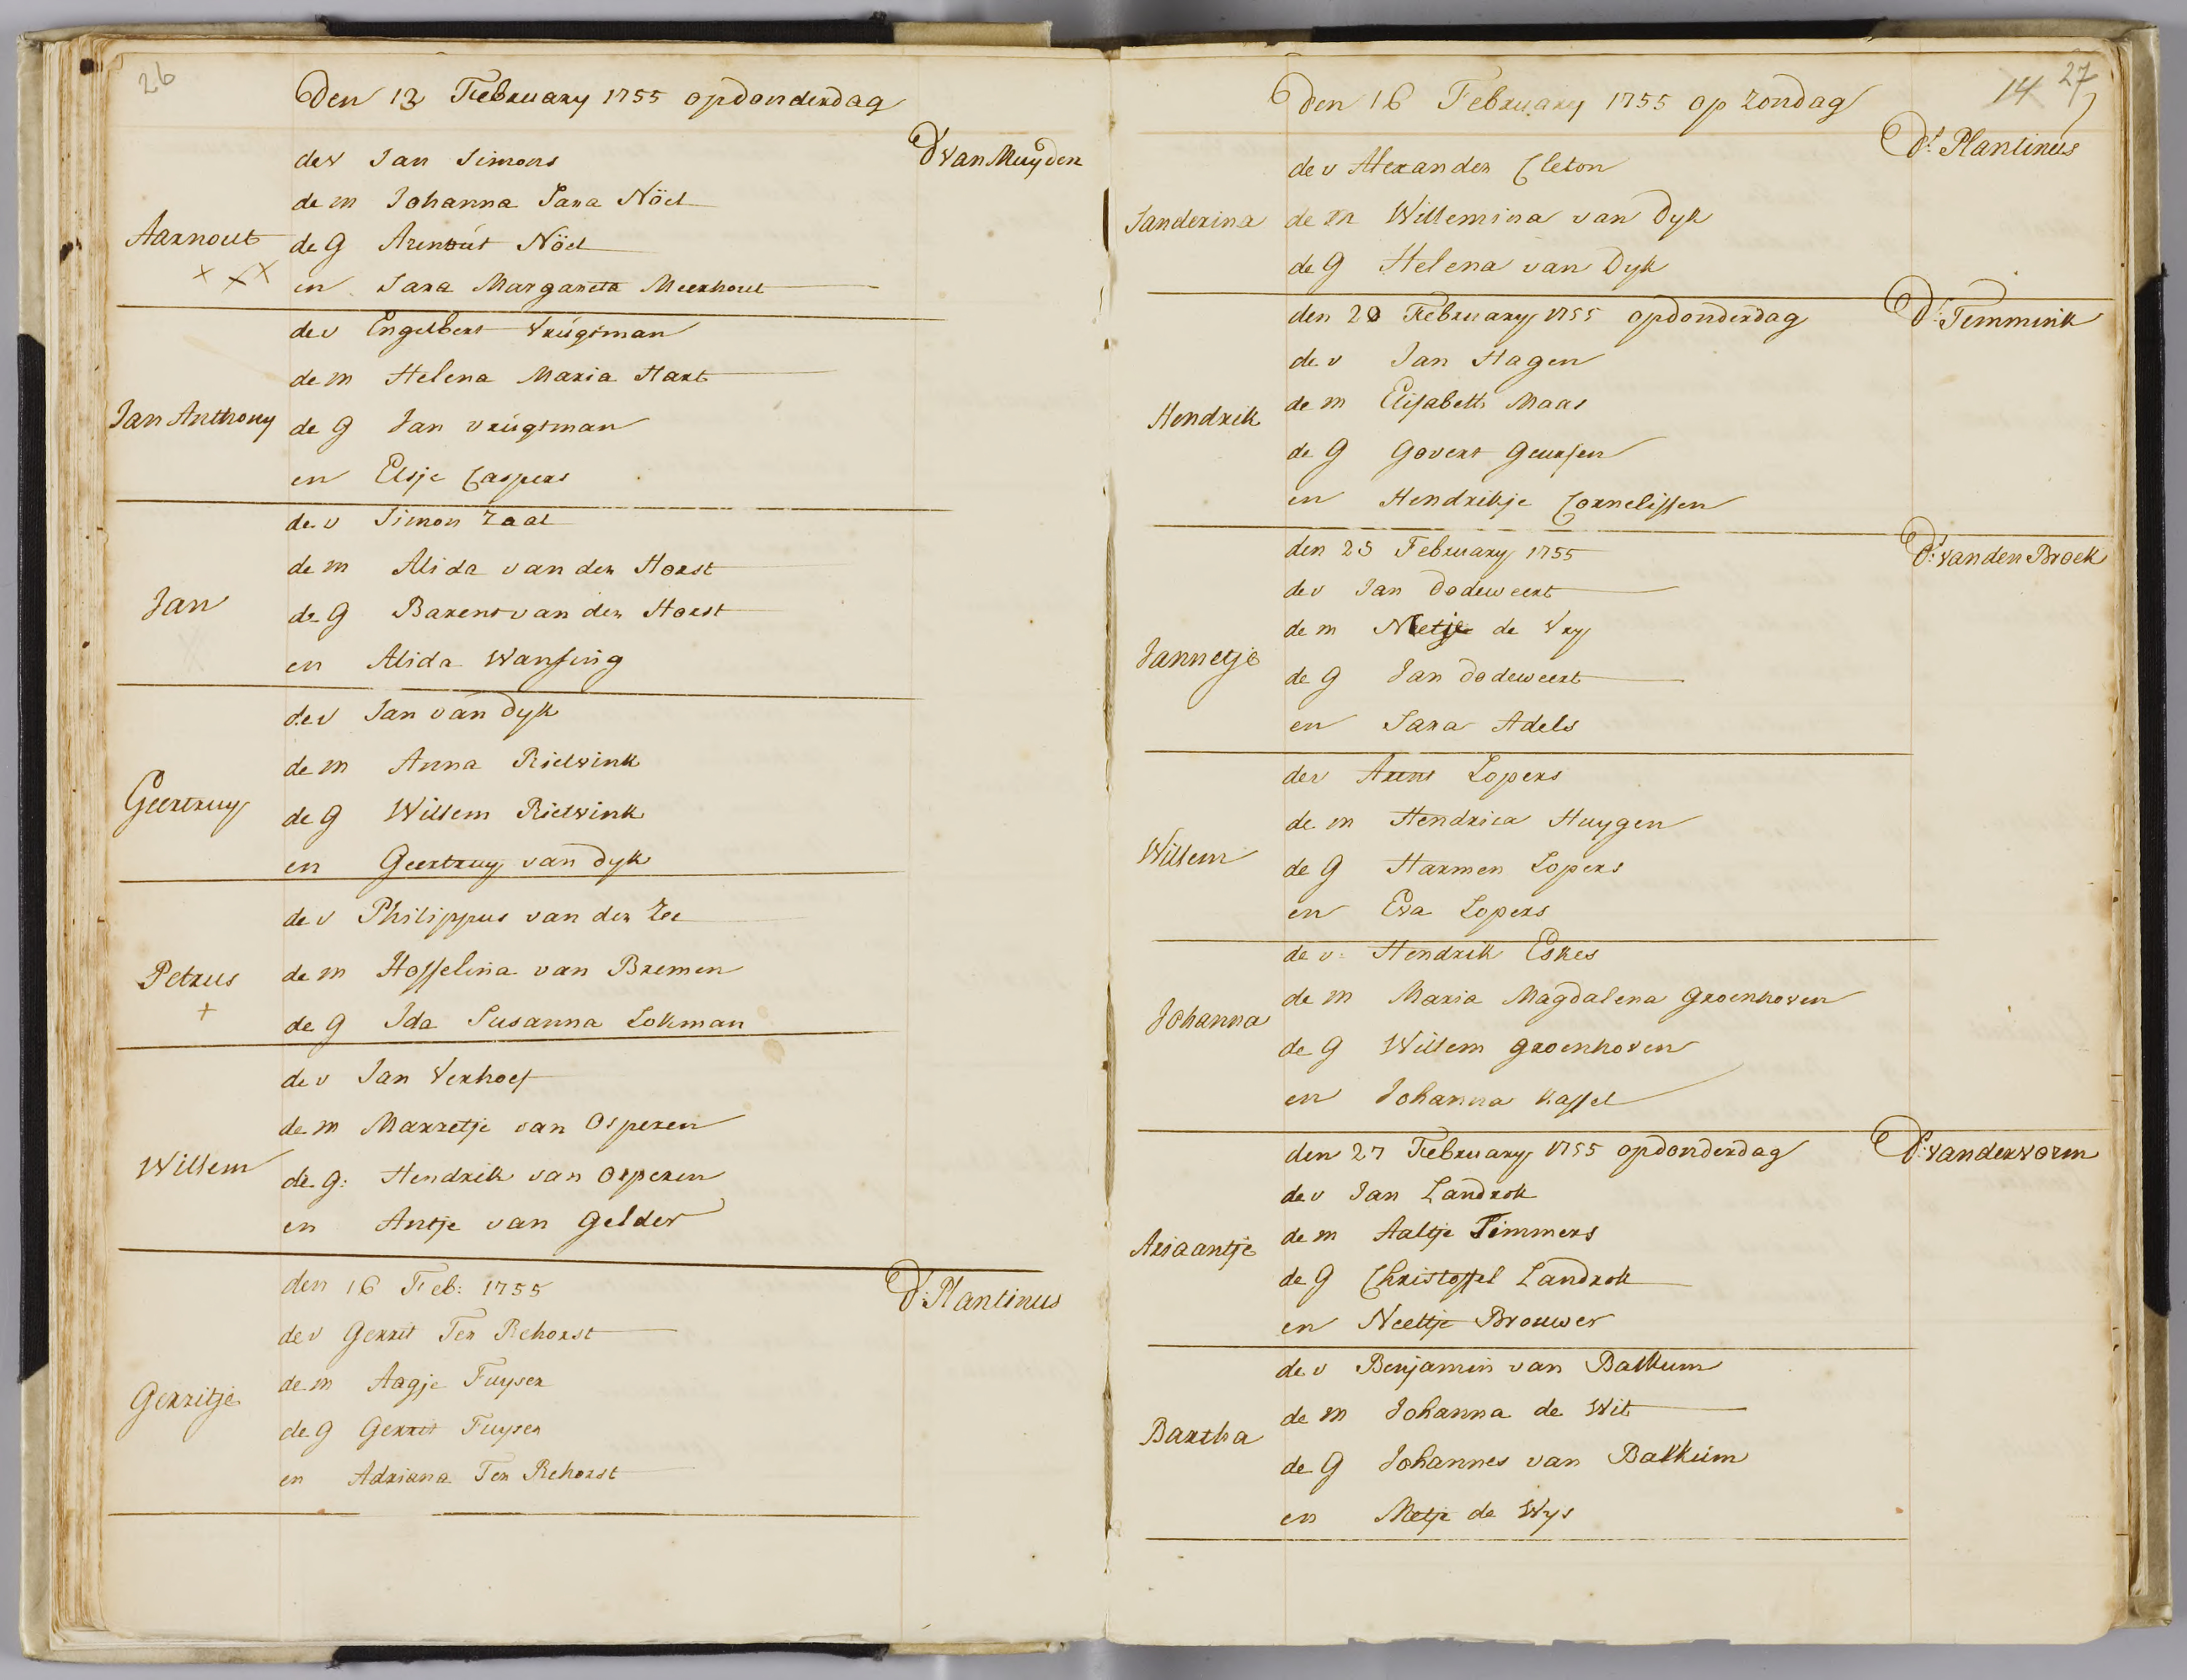 26
Den 13 February 1755 op donderdag
D van Muyden
de v Jan Simons
de m Johanna Sara Nöel
Aarnout
de G Arenout Nöel
en Sara Margareta Meerhout
de v Engelbert Vrúgtman
de m Helena Maria Hart
Jan Anthony
de G Jan Vrúgtman
en Elsje Caspers
de v Simon Zaal
de m Alida van der Horst
Jan
de G Barent van der Horst
en Alida Wansing
de v Jan van Dyk
de m Anna Rietvink
Geertruy
de G Willem Rietvink
en Geertruy van Dyk
de v Philippus van der Zee
Petrus
de m Hosselina van Bremen
de G Ida Susanna Lokman
de v Jan Verhoef
de m Marretje van Osperen
Willem
de G: Hendrik van Osperen
en Antje van Gelder
den 16 Feb: 1755
D: Plantinus
de v Gerrit Ter Rehorst
de m Aagje Fuyser
Gerritje
de G Gerrit Fuyser
en Adriana Ter Rehorst
14 27
Den 16 February 1755 op Zondag
Ds. Plantinus
de v Alexander Cleton
Sanderina
de m Willemina van Dyk
de G Helena van Dyk
den 20 February 1755 op donderdag
D: Temmink
de v Jan Hagen
Hendrik
de m Elisabeth Maas
de G Govert Geursen
en Hendrikje Cornelissen
den 23 February 1755
D: van den Broek
de v Jan Dodeweert
de m Neetje de Vry
Jannetje
de G Jan Dodeweert
en Sara Adels
de v Arent Lopers
de m Hendrica Huygen
Willem
de G Harmen Lopers
en Eva Lopers
de v: Hendrik Eskes
de m Maria Magdalena Groenhoven
Johanna
de G Willem Groenhoven
en Johanna Kassel
den 27 February 1755 op donderdag
D: van der Vorm
de v Jan Landrok
Ariaantje
de m Aaltje Timmers
de G Christoffel Landrok
en Neeltje Brouwer
de v Benjamin van Balkum
de m Johanna de Wit
Bartha
de G Johannes van Balkúm
en Metje de Wys